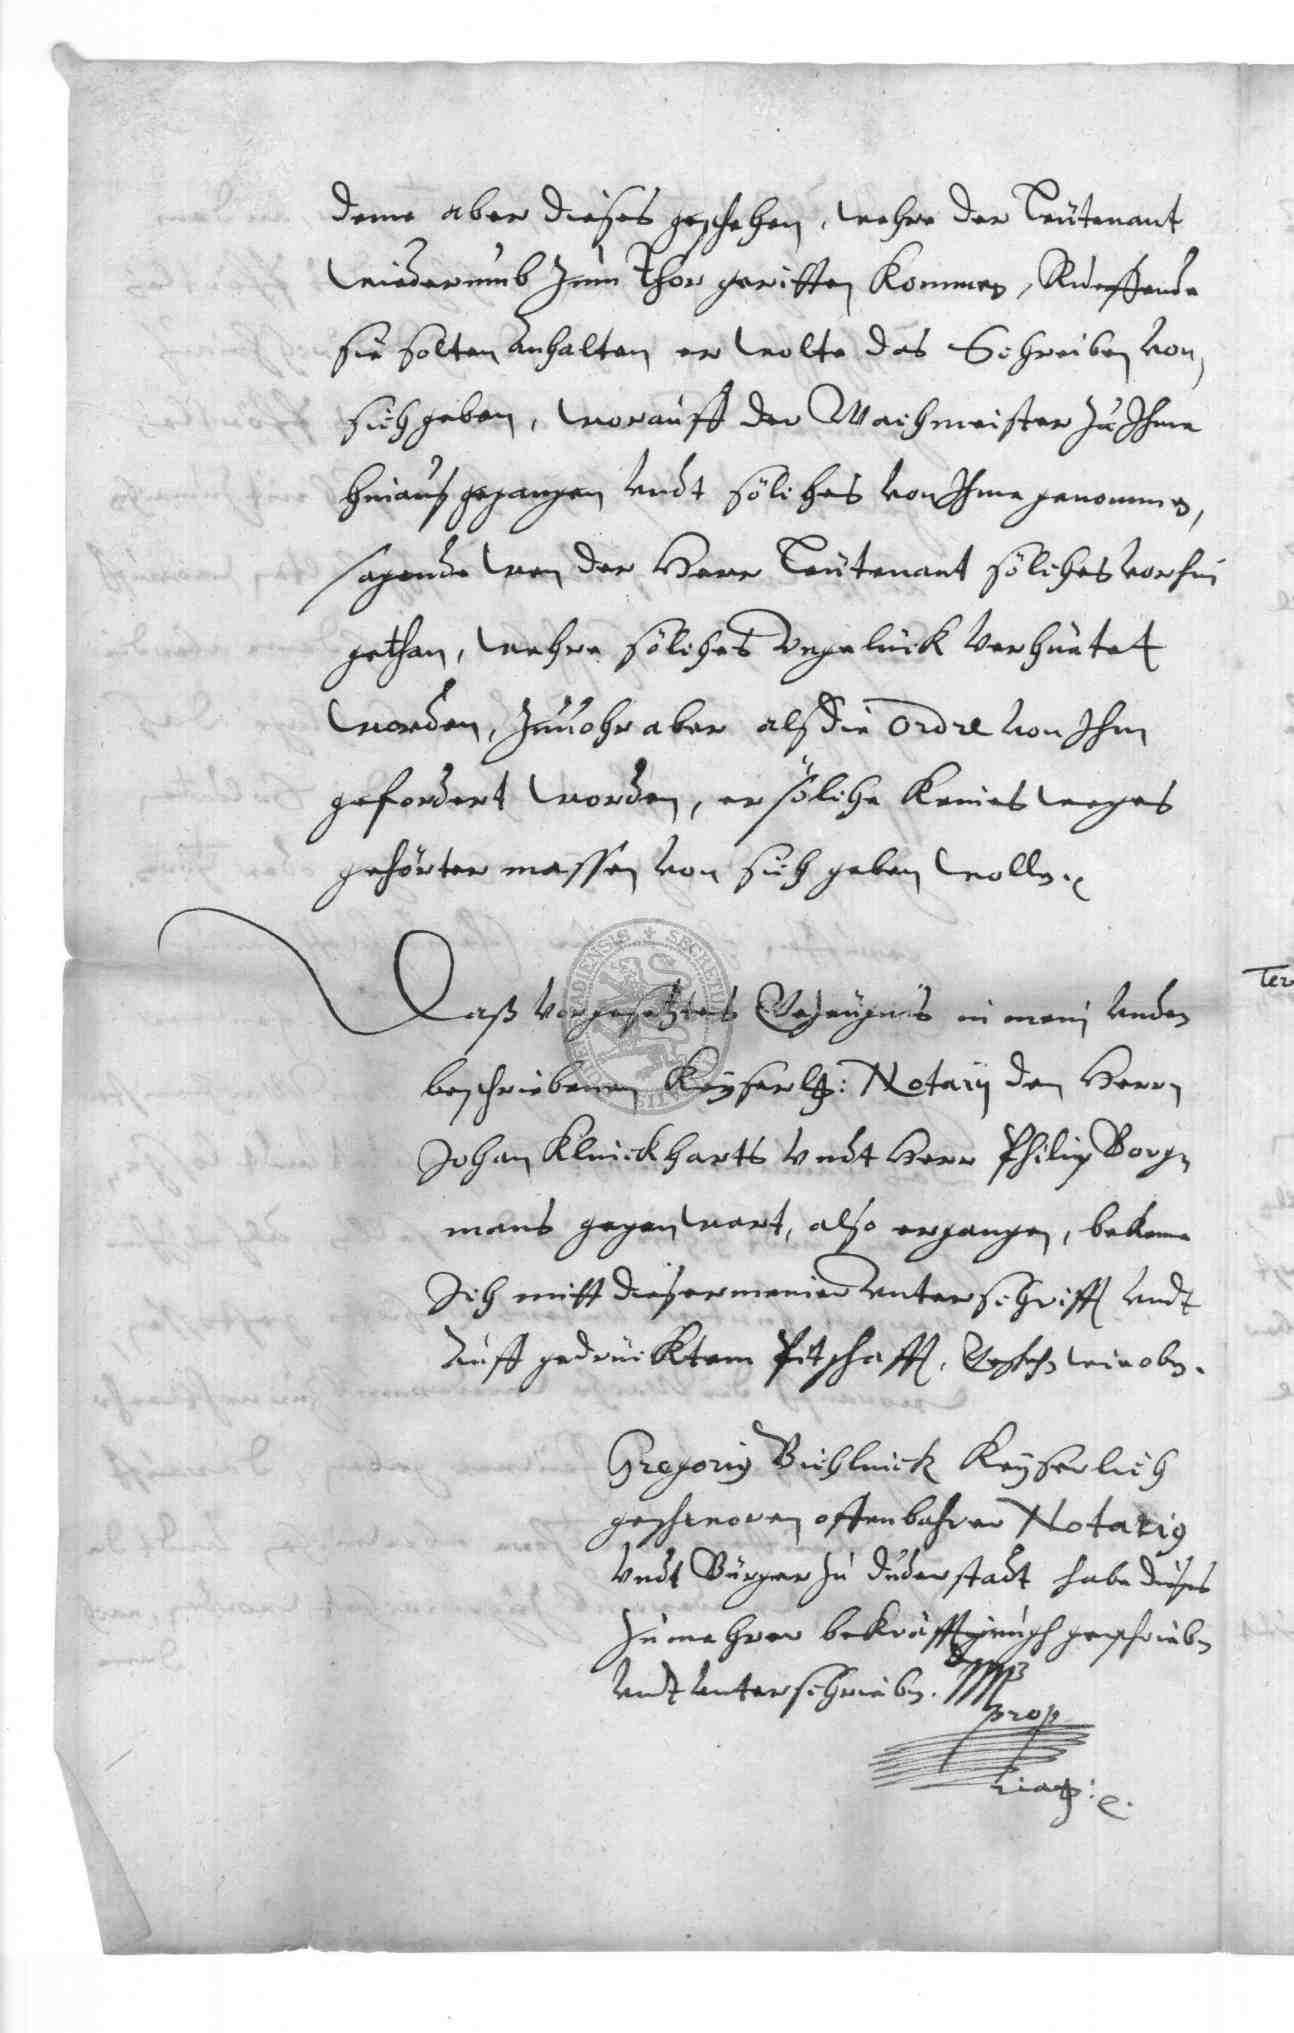 deme aber dieses geschehen, wehre der Leutenant
wiederumb zum Thor geritten kommen, Rueffende
sie solten anhalten er wolte das Schreiben von
sich geben, worauff der Wachmeister zu Ihme
hinauß gegangen undt söliches von Ihme genommen,
sagende wen der Herr Leutenant söliches vorhin
gethan, wehre söliches Ungelück verhüetet
worden, Zuuohr aber alß die Ordre von Ihm
gefordert worden, er söliche keines weges
gehörter massen von sich geben wollen.
Daß vorgesetztes Gezeugnis in mein unden
beschriebenen Keyserl: Notarij den Herrn
Johan Klinckharts undt Herr Philip Borg
mans gegenwart, also ergangen, bekenne
Ich mitt dieser meiner unterschrifft undt
auff gedrücktem Pitschafft, wie oben.
Gregorius Keyserlich
geschworen offenbahrer Notarius
undt Bürger zu Duderstadt habe dieses
zu mehrer bekräfftigungh geschrieben
undt unterschrieben.
prop